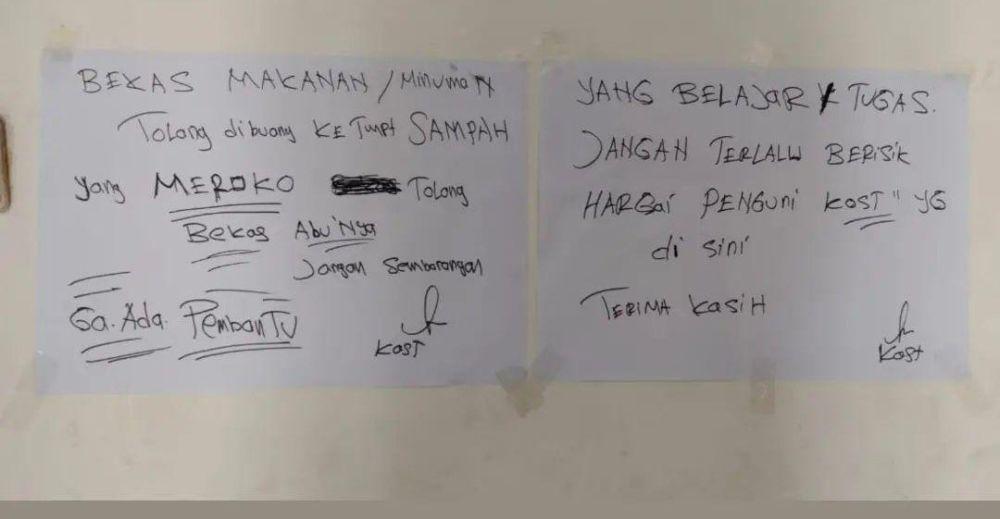 BEKAS MAKANAN / MinumaN
Tolong dibuang KE Tmpt SAMPAH
yang MEROKO Tolong
Bekas Abu'Nya
Jangan Sembarangan
Ga. Ada. PembanTu
KOST
YANG BELAJAR / TUGAS.
JANGAN TERLALU BERISIK
HARGai PENGUni KOST" YG
di sini
TERIMA KasiH
Kost